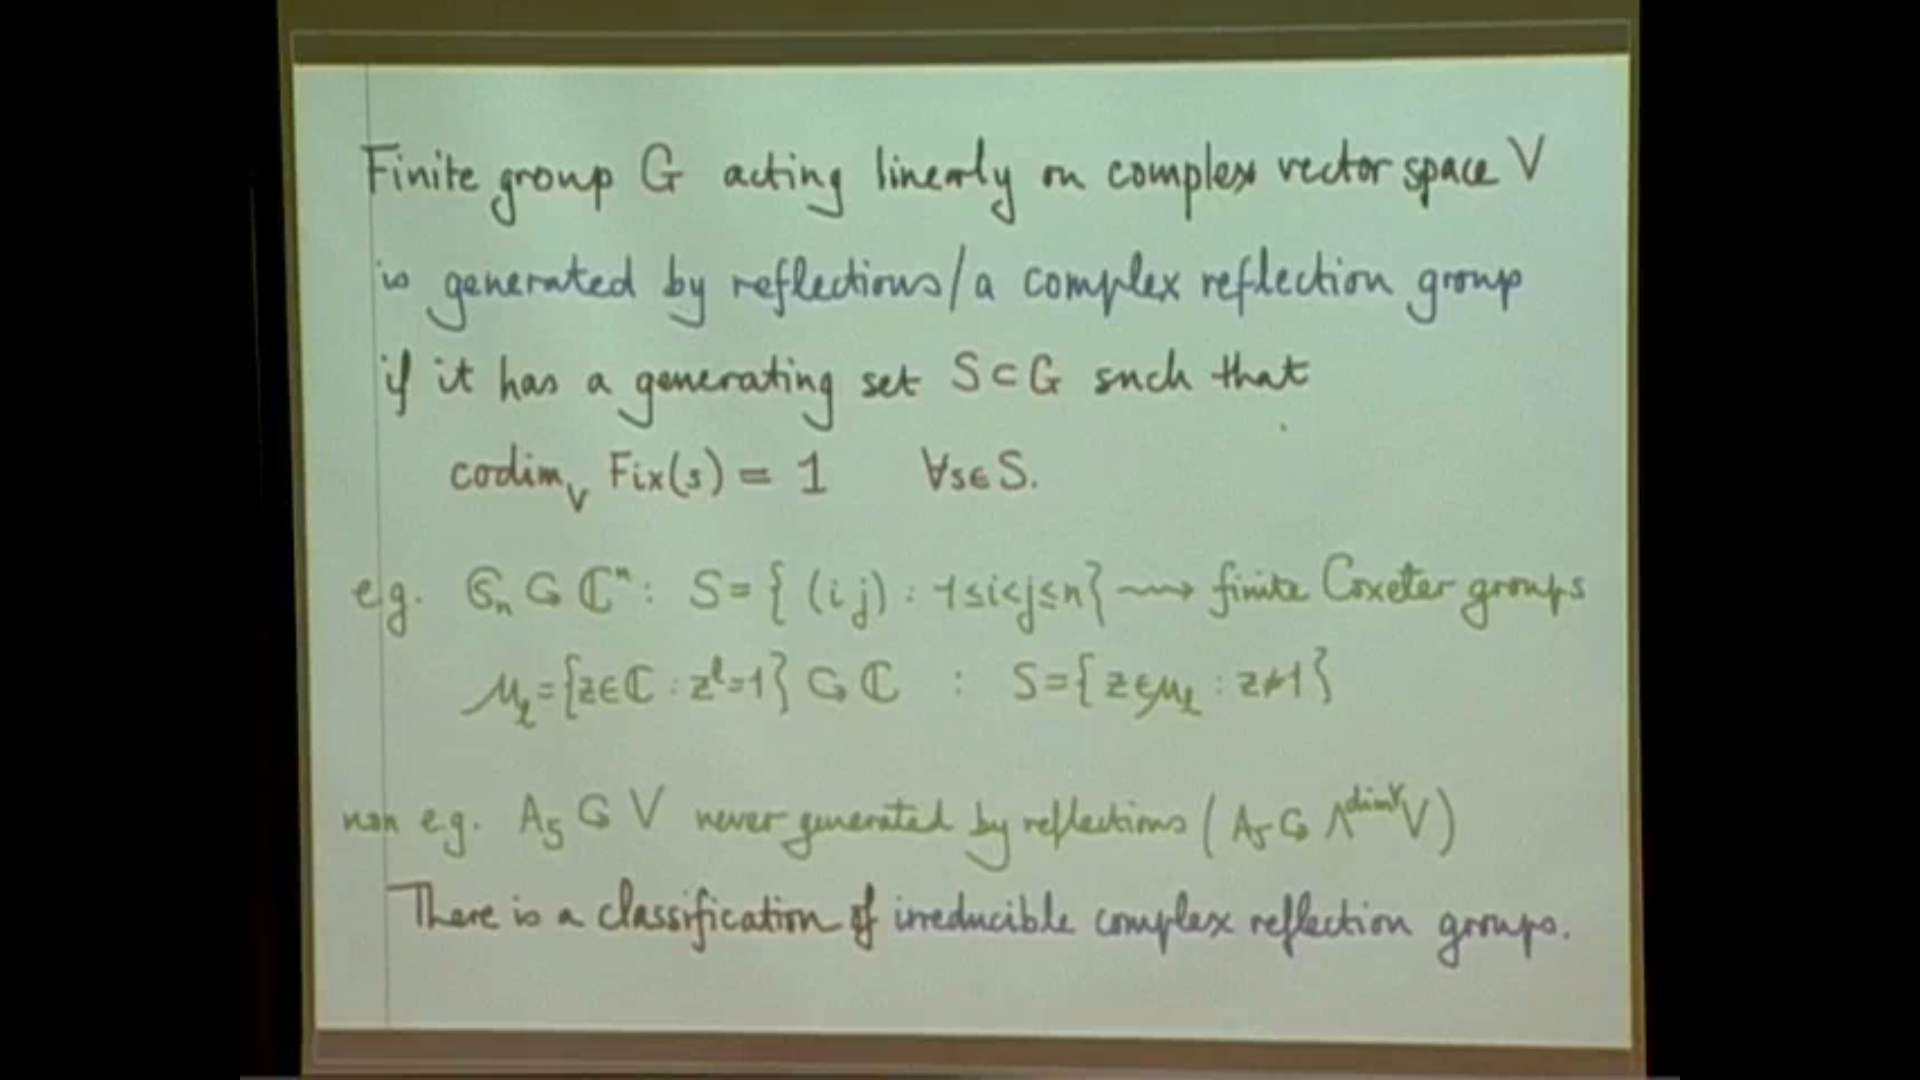 Finite group G acting linearly on complex vector space V
is generated by reflections/a complex reflection group
if it has a generating set S⊂G such that
codim_V Fix(s) = 1 ∀s∈S.
e.g. 𝔖_n ↻ ℂ^n : S={ (i j) : 1≤i<j≤n} ⟿ finite Coxeter groups
μ_ℓ={z∈ℂ : z^ℓ=1} ↻ ℂ : S={ z∈μ_ℓ : z≠1}
non e.g. A_5 ↻ V never generated by reflections ( A_5 ↻ Λ^{dim V} V)
There is a classification of irreducible complex reflection groups.